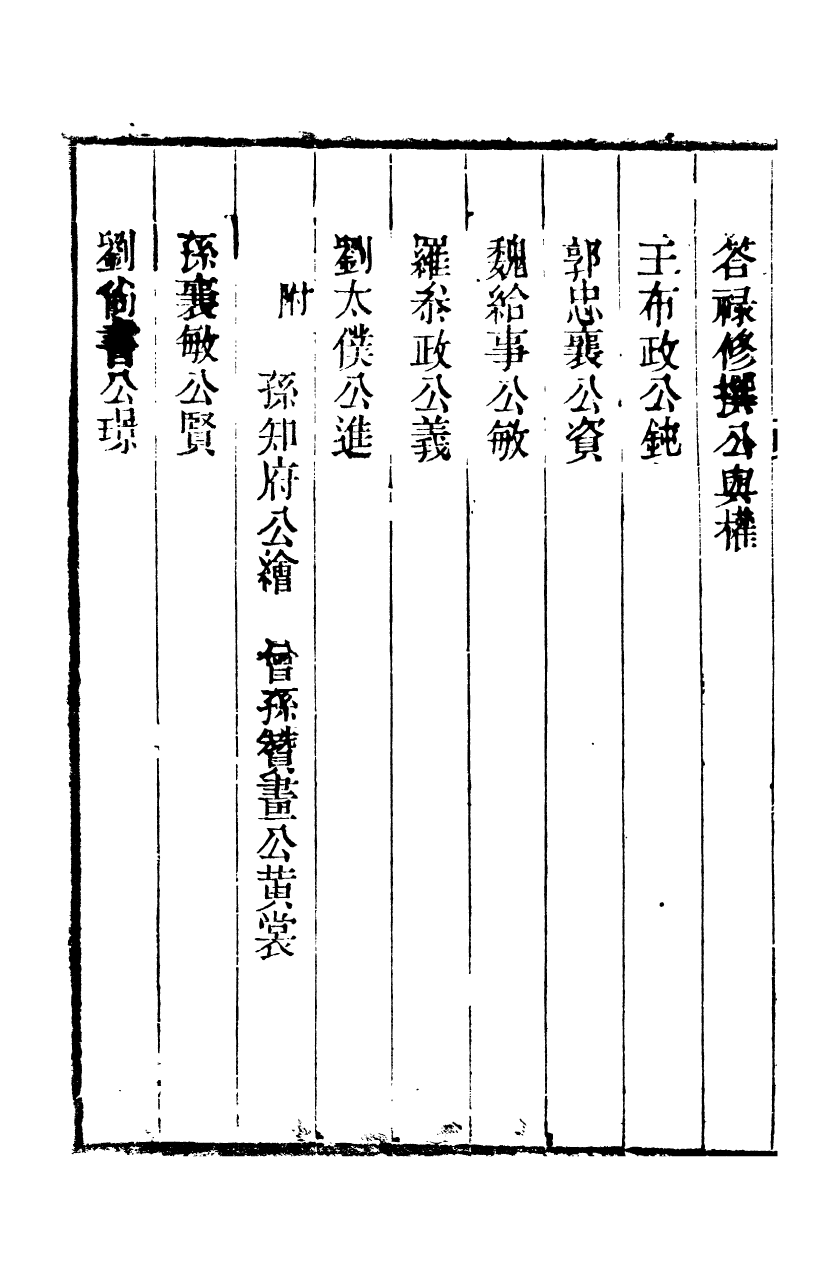 荅禄修撰公與權
王布政公鈍
郭忠襄公資
魏給事公敏
羅叅政公義
劉太僕公進
附　孫知府公繪　曾孫贊畫公黄裳
孫襄敏公賢
劉尚書公璟